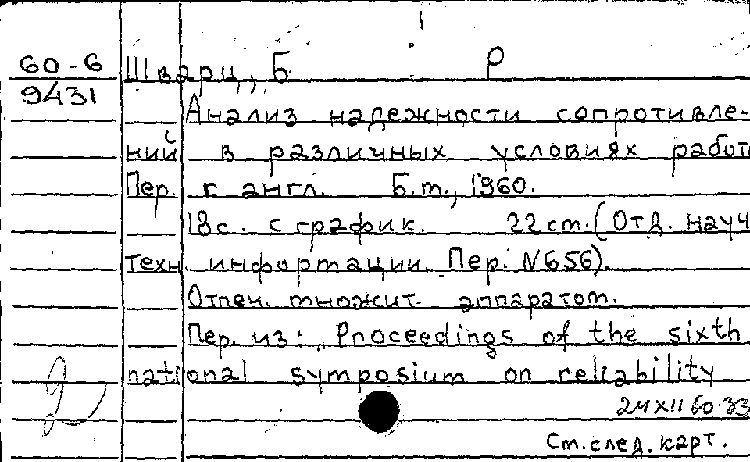 60-6 Шварц, Б. Р
9431
Анализ надежности сопротивле-
ний в различных условиях работ
Пер. с англ. Б.м., 1960.
18с. с график. 22 см. (Отд. науч
техн. информации. Пер. N656).
Отпеч. множит. аппаратом.
Пер. из: Proceedings of the sixth
national symposium on reliability
24 XII 60
См. след. карт.